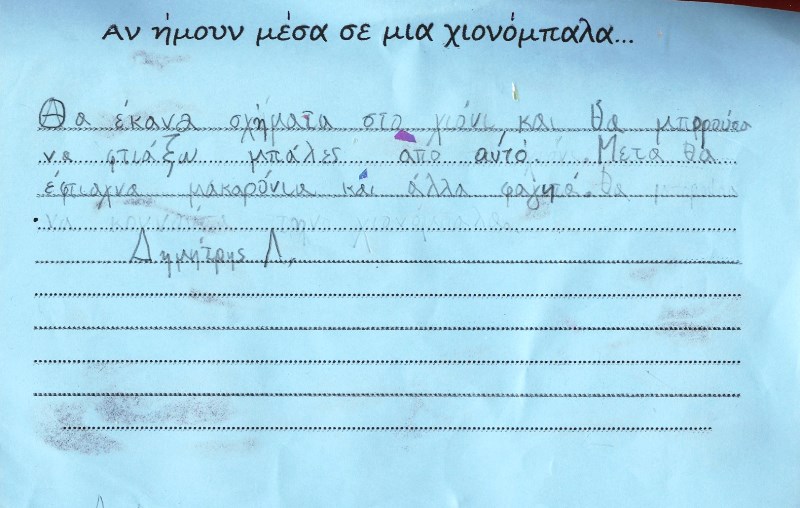 Αν ήμουν μέσα σε μια χιονόμπαλα...
Θα έκανα σχήματα στο χιόνι, και θα μπορούσα
να φτιάξω μπάλες από αυτό. Μετά θα
έφτιαχνα μακαρόνια και άλλα φαγητά.
Δημήτρης Λ.